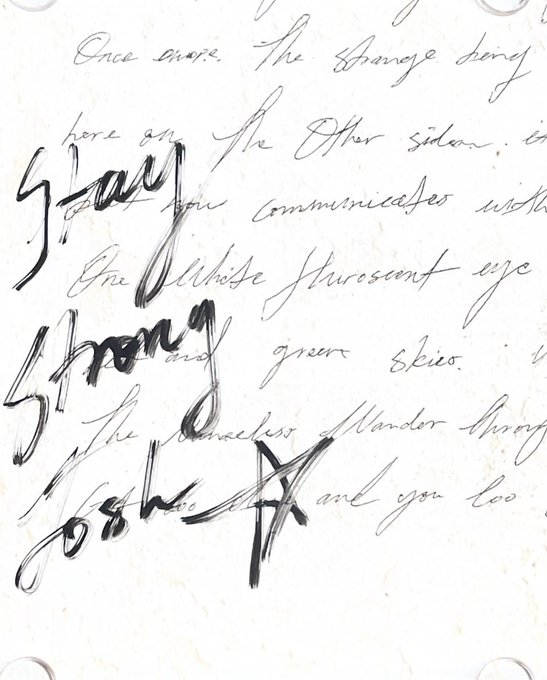 Once more. The strange being
here on The Other side
communicates with
One White fluroscent eye
and green skies.
The Wander throug
and you too
Stay
Strong
Josh